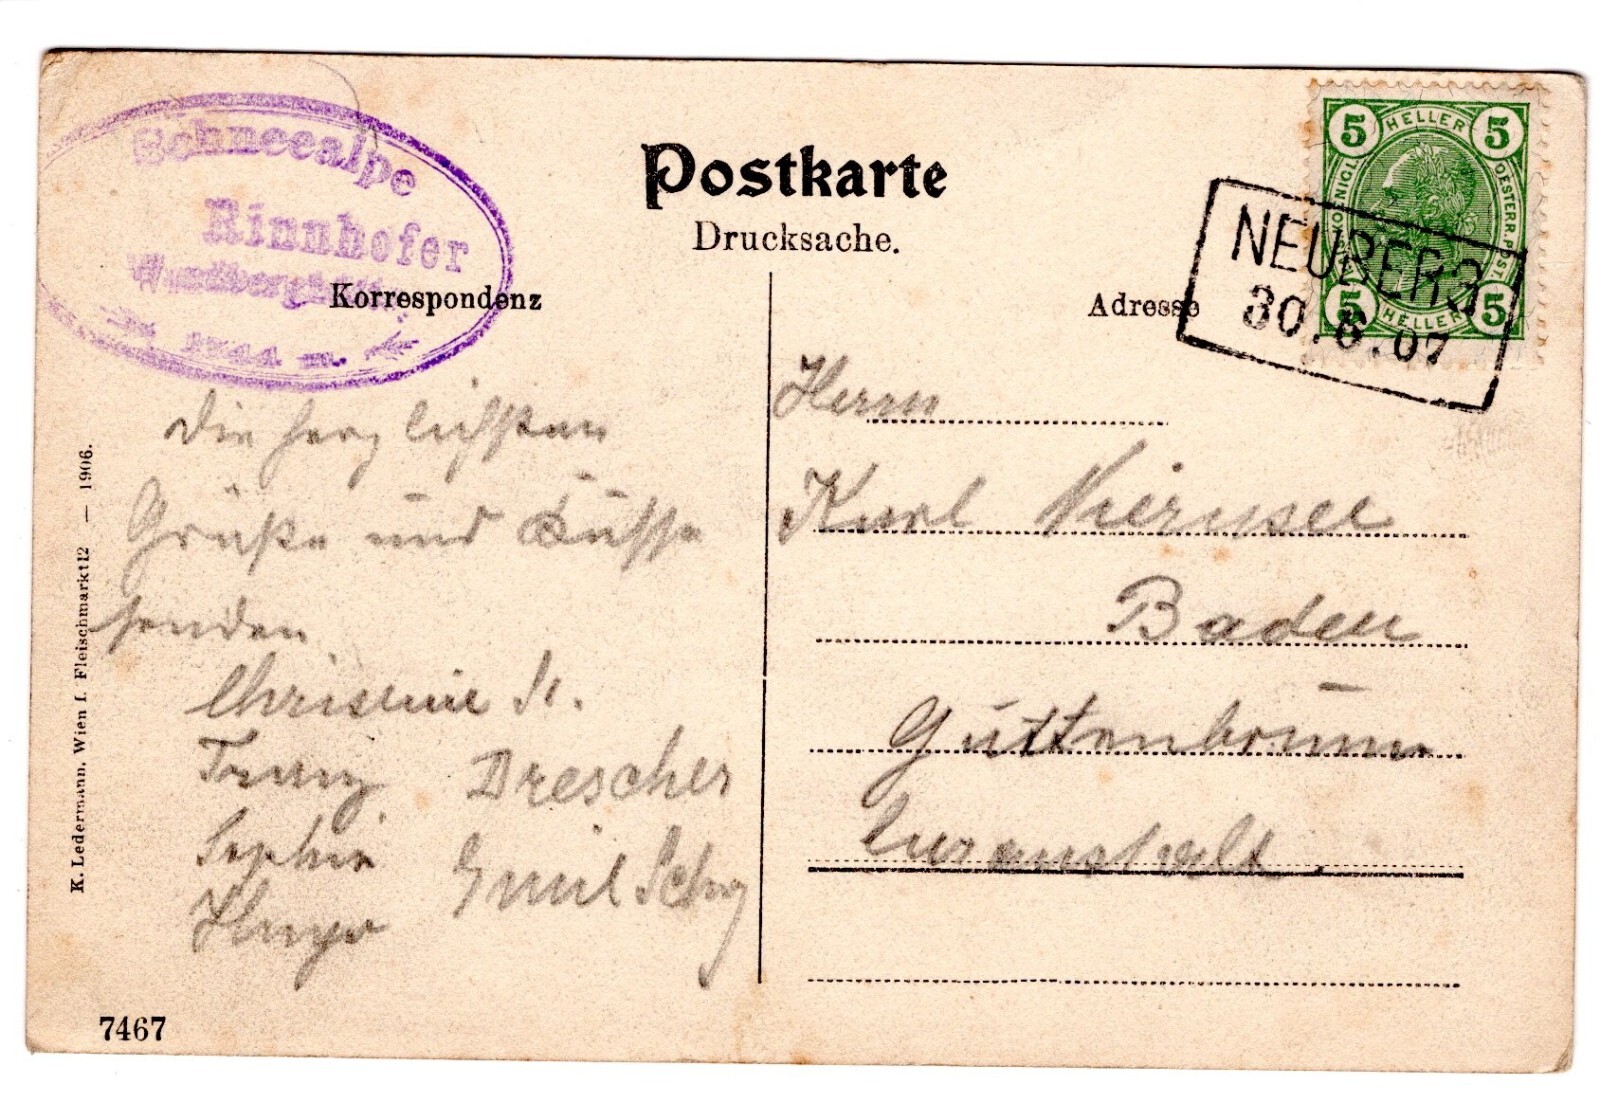 Schneealpe
Rinnhofer
1744 m.
Postkarte
Drucksache.
Korrespondenz
Adresse
5 HELLER 5
KOENIGL.
OESTERR. POST.
5 HELLER 5
NEUBERG
30.6.07
Die herzlichsten
Grüße und Küsse
senden
Christine
Franz Drescher
Sophie Emil
Hugo
Herrn
Karl
Baden
Guttenbrunn
Curanstalt.
K. Ledermann, Wien I. Fleischmarkt 12 — 1906.
7467